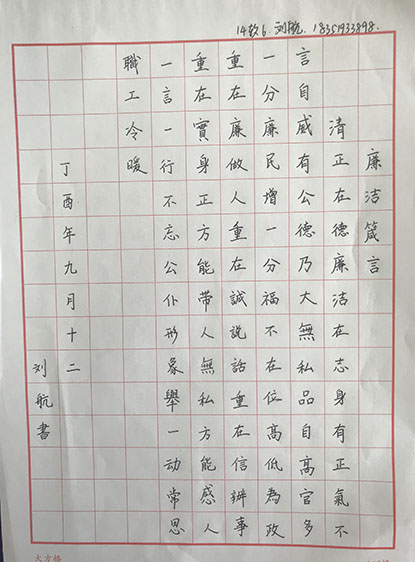 刘航. 18351933898.
廉洁箴言
清正在德廉洁在志身有正氣不
言自威有公德乃大無私品自高官多
一分廉民增一分福不在位高低為政
重在廉做人重在誠說話重在信辦事
重在實身正方能帶人無私方能感人
一言一行不忘公仆形象舉一动常思
職工冷暖
丁酉年九月十二
刘航書
大方格